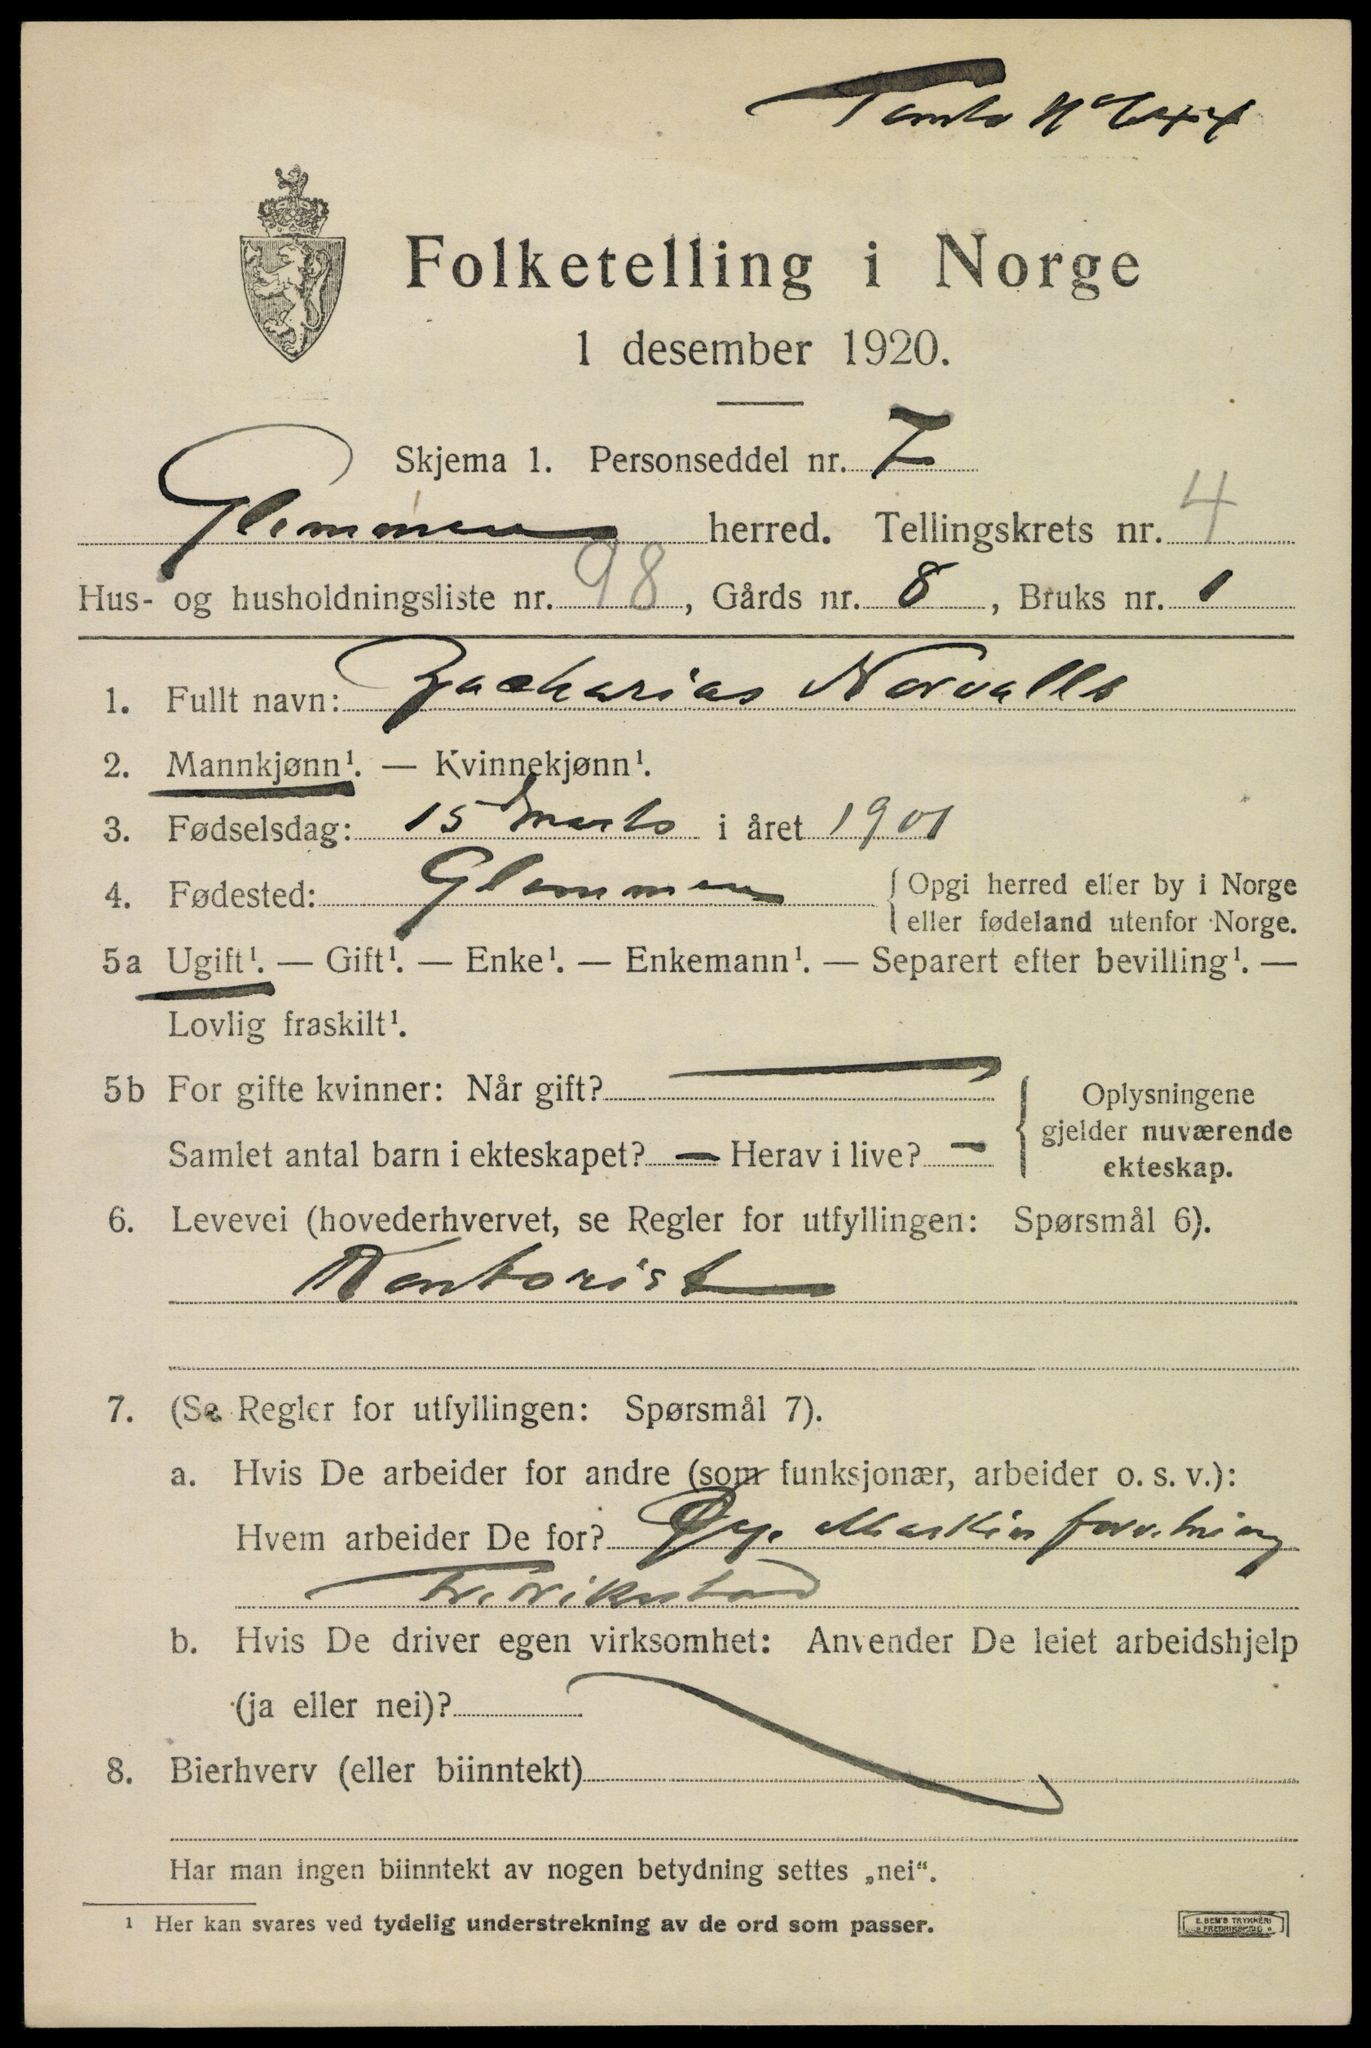 Tomt No 644
Folketelling i Norge
1 desember 1920.
Skjema 1. Personseddel nr. 7
Glemmen herred. Tellingskrets nr. 4
Hus- og husholdningsliste nr. 98, Gårds nr. 8, Bruks nr. 1
1. Fullt navn: Zacharias Norvalls
2. Mannkjønn¹. — Kvinnekjønn¹.
3. Fødselsdag: 15 Marts i året 1901
4. Fødested: Glemmen {Opgi herred eller by i Norge
eller fødeland utenfor Norge.
5a Ugift¹. — Gift¹. — Enke¹. — Enkemann¹. — Separert efter bevilling¹. —
Lovlig fraskilt¹.
5b For gifte kvinner: Når gift? — { Oplysningene
gjelder nuværende
Samlet antal barn i ekteskapet? — Herav i live? —
ekteskap.
6. Levevei (hovederhvervet, se Regler for utfyllingen: Spørsmål 6).
Kontorist
7. (Se Regler for utfyllingen: Spørsmål 7).
a. Hvis De arbeider for andre (som funksjonær, arbeider o. s. v.):
Hvem arbeider De for? Øye Maskinforretning
Fredrikstad
b. Hvis De driver egen virksomhet: Anvender De leiet arbeidshjelp
(ja eller nei)?
8. Bierhverv (eller biinntekt)
Har man ingen biinntekt av nogen betydning settes „nei“.
¹ Her kan svares ved tydelig understrekning av de ord som passer.
E. SEM'S TRYKKERI
FREDRIKSHALD